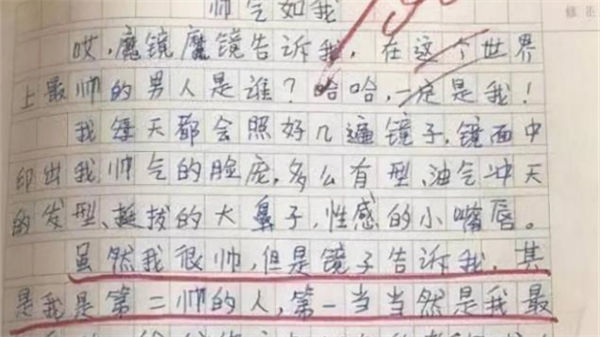 帅气如我
哎,魔镜魔镜告诉我,在这个世界
上最帅的男人是谁?哈哈,一定是我!
我每天都会照好几遍镜子,镜面中
印出我帅气的脸庞,多么有型、油气冲天
的发型、挺拔的大鼻子,性感的小嘴唇。
虽然我很帅,但是镜子告诉我,其
是我是第二帅的人,第一当当然是我最